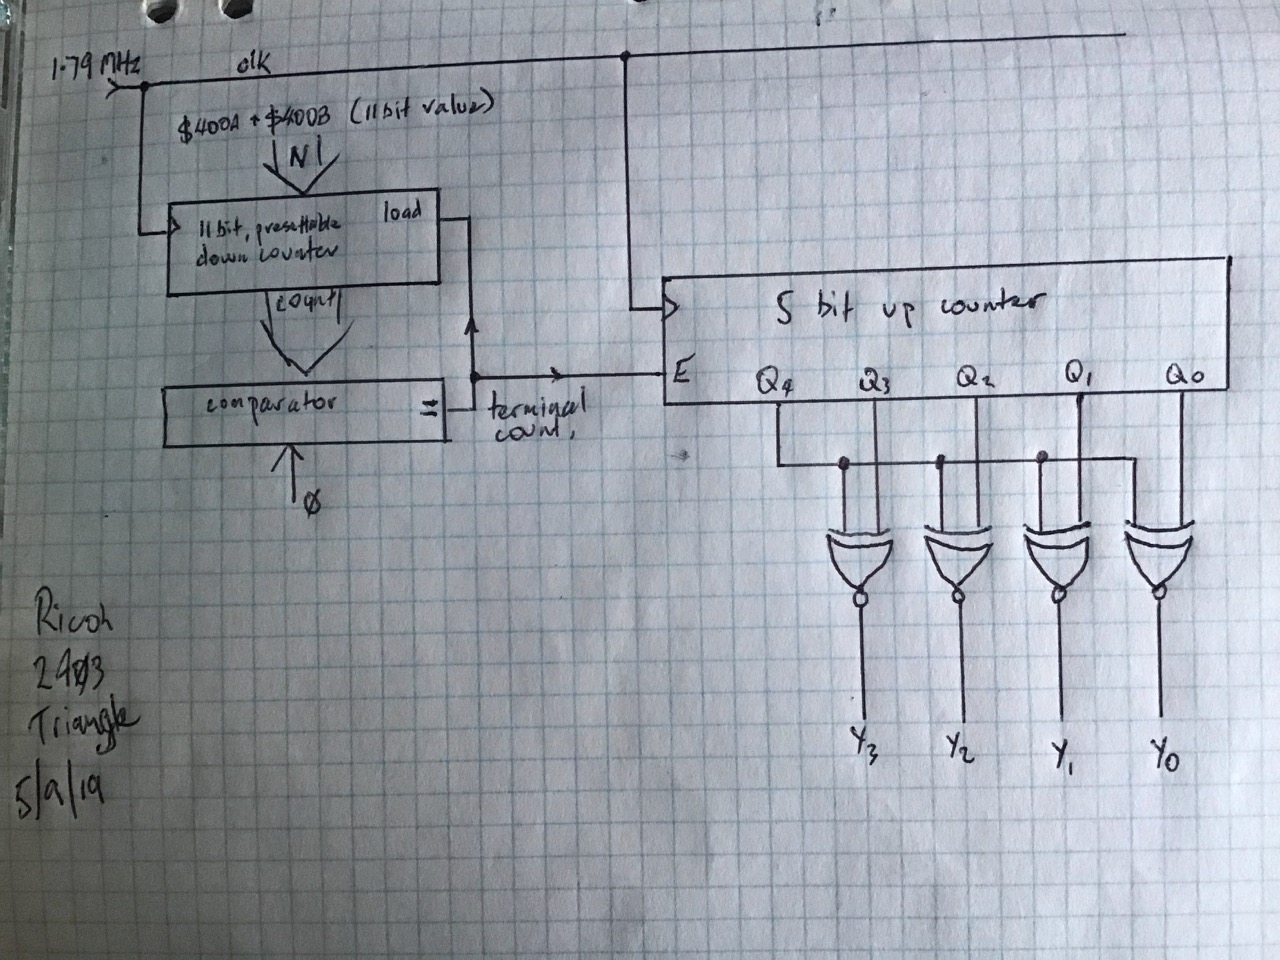 1.79 MHz
clk
$400A + $400B (11 bit value)
N
11 bit, presettable
down counter
load
count
comparator =
Ø
terminal
count,
5 bit up counter
E
Q4 Q3 Q2 Q1 Q0
Y3 Y2 Y1 Y0
Ricoh
2AØ3
Triangle
5/9/19